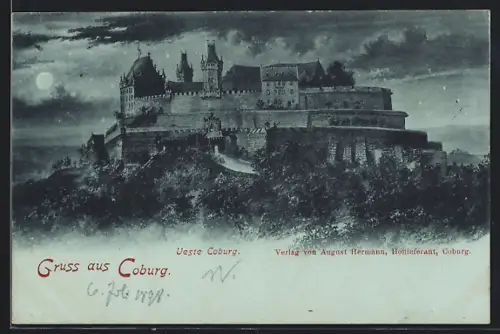 Veste Coburg.
Verlag von August Hermann, Hoflieferant, Coburg.
Gruss aus Coburg.
6. 1898.